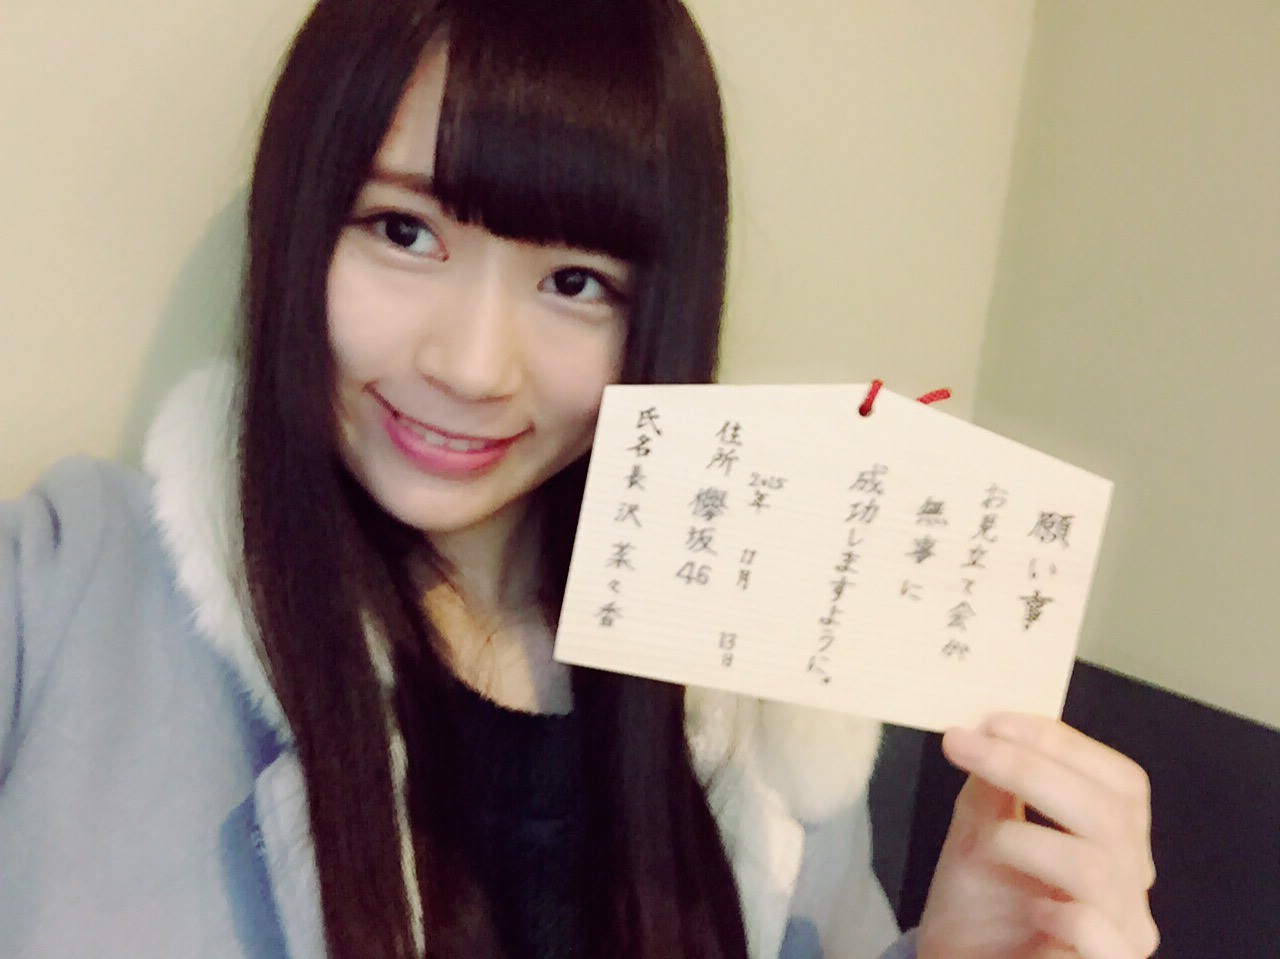 願い事
お見立て会が
無事に
成功しますように。
2015年 11月 13日
住所 欅坂46
氏名 長沢菜々香